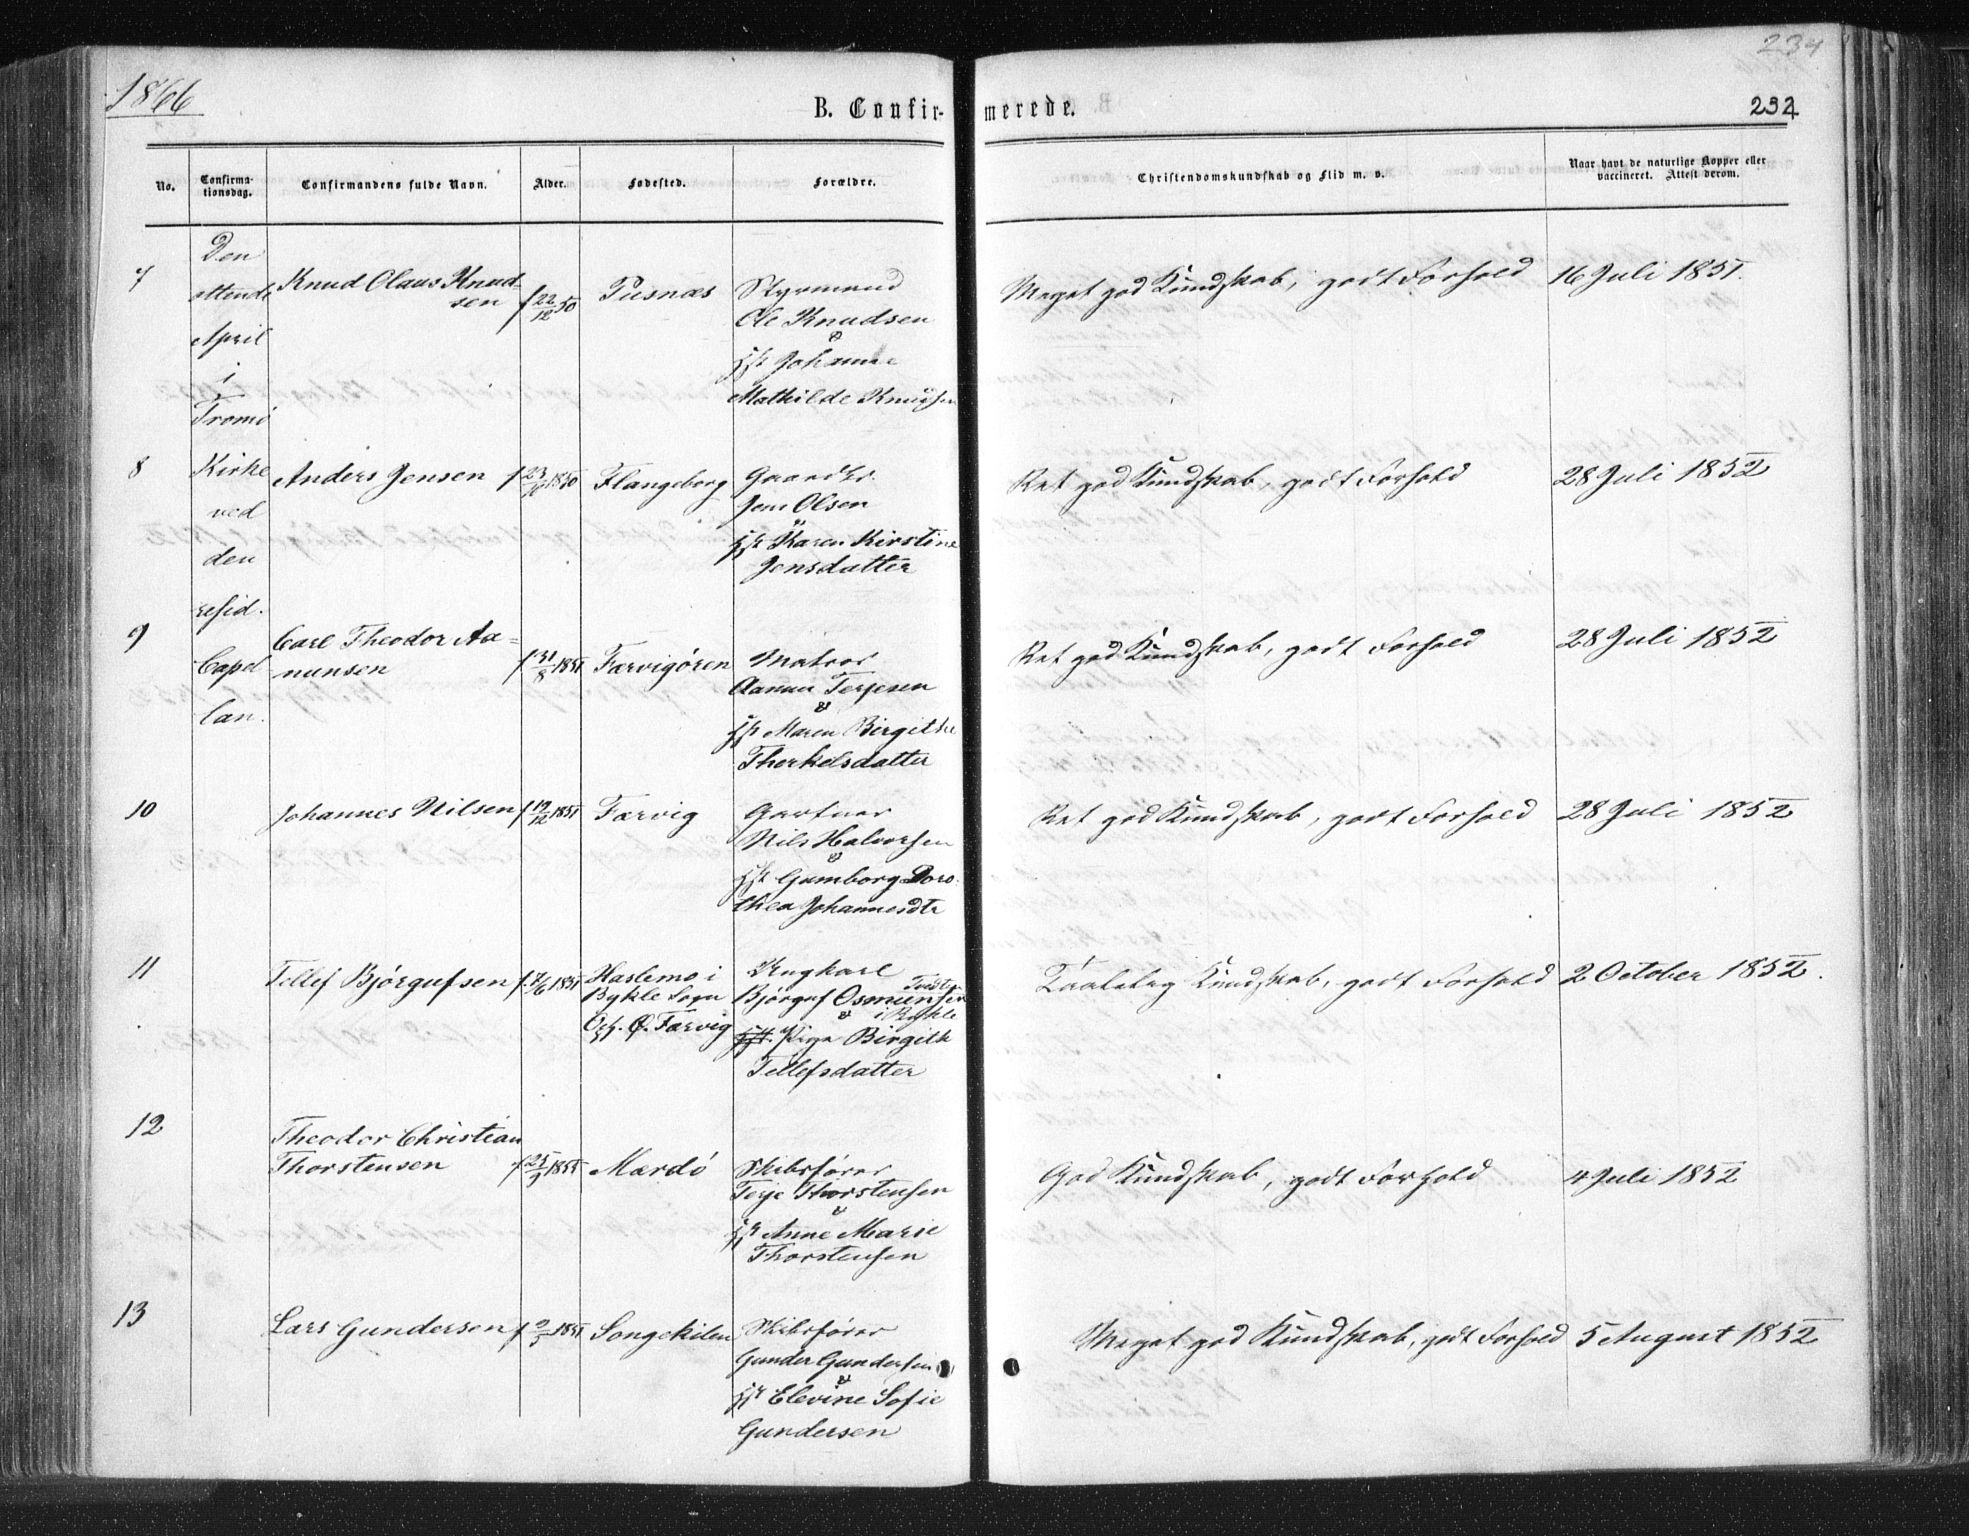 1866
B. Confir-
merede.
234
232
No.
Confirma-
tionsdag.
Confirmandens fulde Navn.
Alder.
Fødested.
Forældre.
Christendomskundskab og Flid m. v.
Naar havt de naturlige Kopper eller
vaccineret. Attest derom.
Den
ottende
April
i
Tromø
Kirke
ved
den
resid.
Capel
lan.
7
Knud Olaus Knud-
sen
f 22/12 50
Pusnæs
Styrmand
Ole Knudsen
&
Johanne
Mathilde Knudsen
Meget god Kundskab, godt Forhold
16 Juli 1851.
8
Anders Jensen
f 23/10 1850
Flangeborg
Gaardbr.
Jens Olsen
&
Karen Kirstine
Jensdatter
Ret god Kundskab, godt Forhold
28 Juli 1852
9
Carl Theodor Aa=
nunsen
f 31/8 1851
Færvigøren
Matros
Aanun Terjesen
&
Maren Birgithe
Thorkelsdatter
Ret god Kundskab, godt Forhold
28 Juli 1852
10
Johannes Nilsen
f 19/12 1851
Færvig
Gartner
Nils Halvorsen
&
Gumborg Doro-
thea Johannesdtr
Ret god Kundskab, godt Forhold
28 Juli 1852
11
Tellef Bjørgufsen
f. 7/6 1851
Haslemo i
Bykle Sogn
Færvig
Ungkarl
Bjørguf Osmunsen
Tvedte
i Bykle
&
Pige Birgith
Tellefsdatter
Taalelig Kundskab, godt Forhold
2 October 1852.
12
Theodor Christian
Thorstensen
f 25/3 1851
Mærdø
Skibsfører
Terje Thorstensen
&
Anne Marie
Thorstensen
God Kundskab, godt Forhold
4 Juli 1852
13
Lars Gundersen
f 2/3 1851
Songekilen
Skibsfører
Gunder Gundersen
&
Elevine Sofie
Gundersen
Meget god Kundskab, godt Forhold
5 August 1852